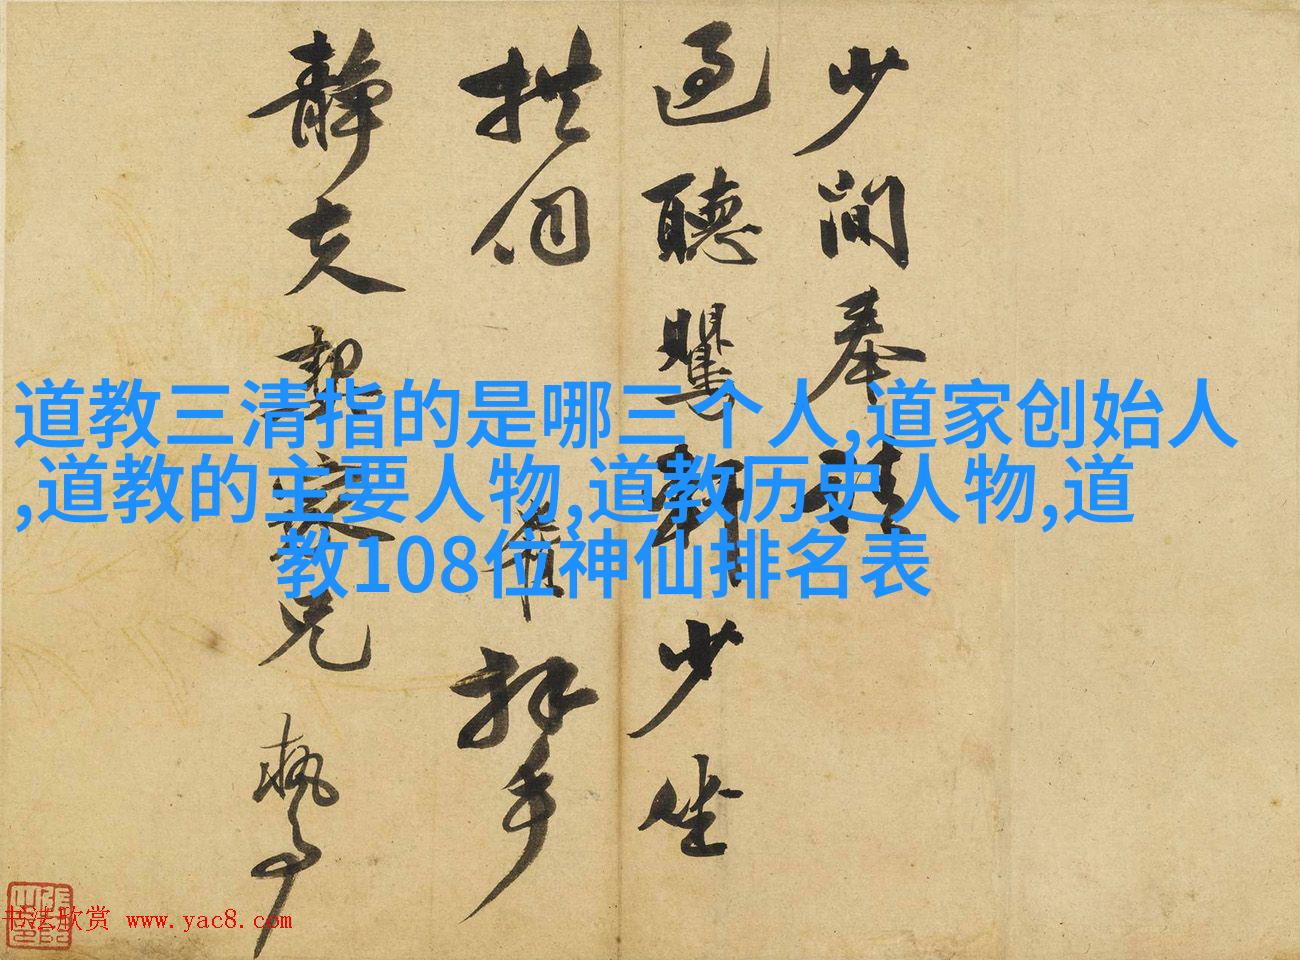 少閒奉
過聽軒少坐
拱伺
拜手
靜夫契家兄執事
道教三清指的是哪三个人,道家创始人
,道教的主要人物,道教历史人物,道
教108位神仙排名表
书法欣赏 www.yac8.com